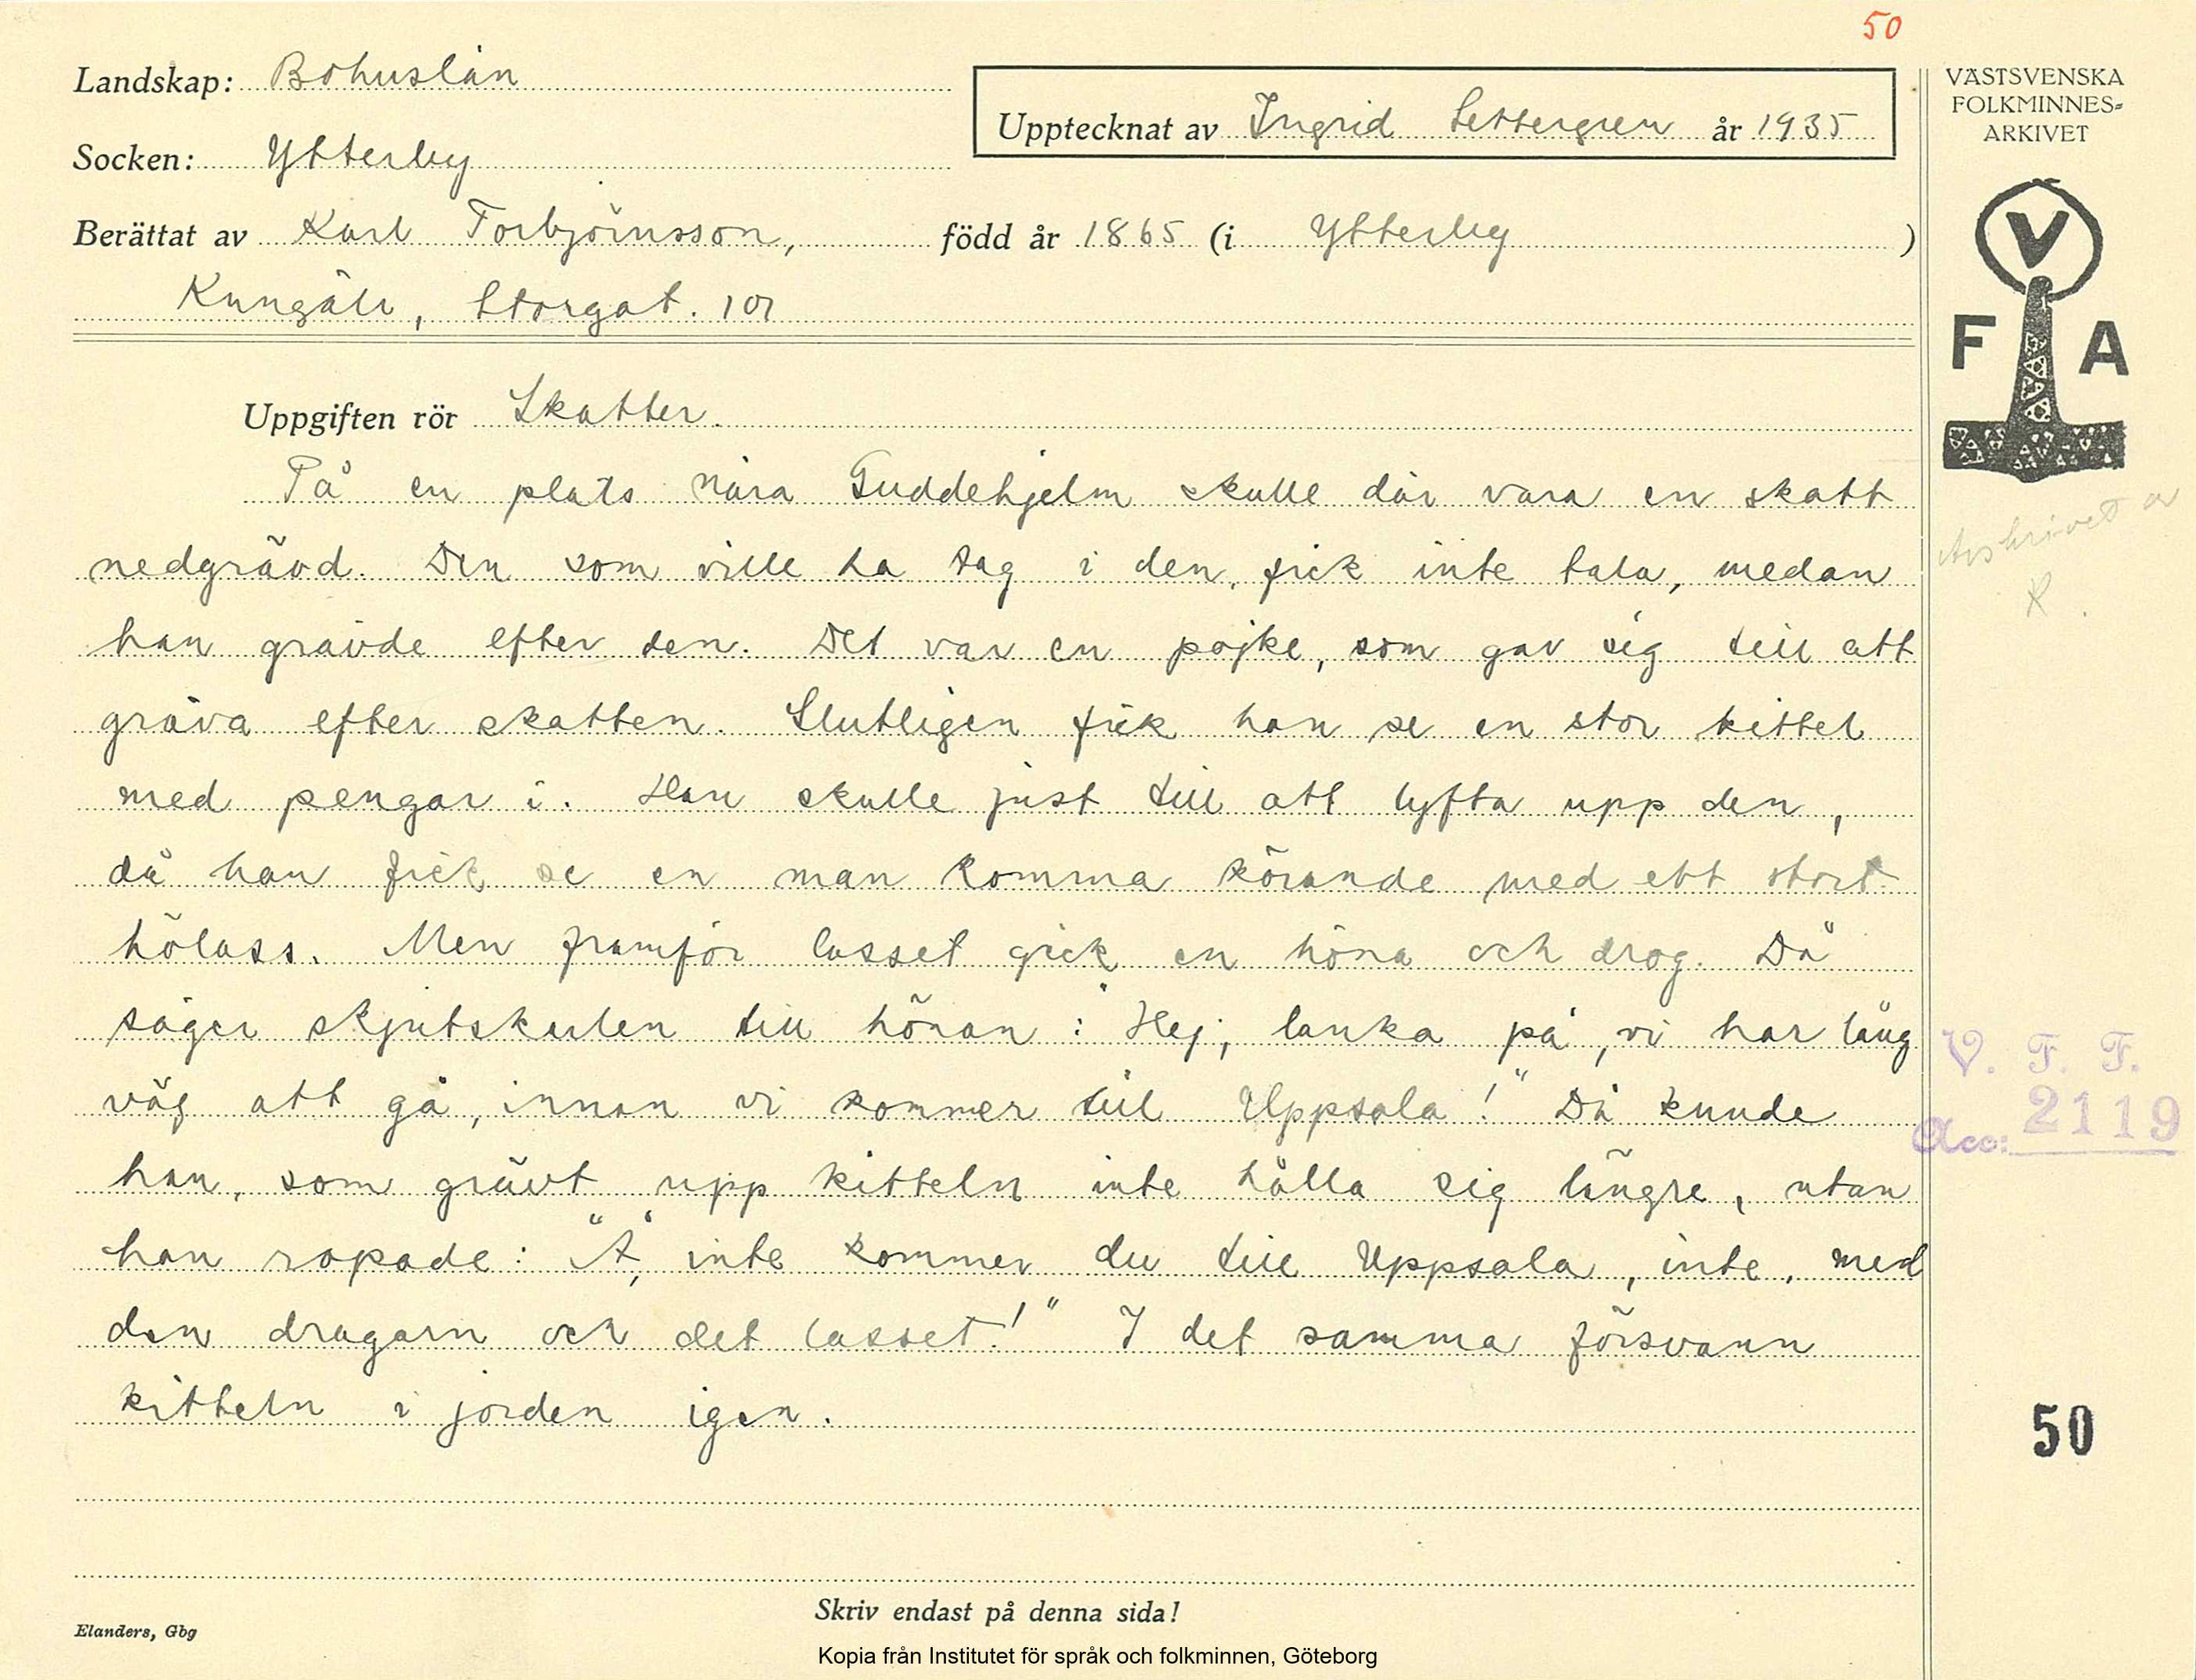 50
Landskap: Bohuslän
Upptecknat av Ingrid Settergren år 1935
Socken: Ytterby
Berättat av Karl Torbjörnsson, född år 1865 (i Ytterby )
Kungälv, Storgat. 101
Uppgiften rör Skatter.
På en plats nära Guddehjelm skulle där vara en skatt
nedgrävd. Den som ville ha tag i den, fick inte tala, medan
han grävde efter den. Det var en pojke, som gav sig till att
gräva efter skatten. Slutligen fick han se en stor kittel
med pengar i. Han skulle just till att lyfta upp den,
då han fick se en man komma körande med ett stort
hölass. Men framför lasset gick en höna och drog. Då
säger skjutskarlen till hönan: "Hej, lanka på, vi har lång
väg att gå, innan vi kommer till Uppsala!" Då kunde
han, som grävt upp kitteln inte hålla sig längre, utan
han ropade: "Å, inte kommer du till Uppsala, inte, med
den dragarn och det lasset!" I det samma försvann
kitteln i jorden igen.
Skriv endast på denna sida!
Elanders, Gbg
Kopia från Institutet för språk och folkminnen, Göteborg
VÄSTSVENSKA
FOLKMINNES-
ARKIVET
V
F A
Avskrivet av
R.
V. F. F.
Acc: 2119
50